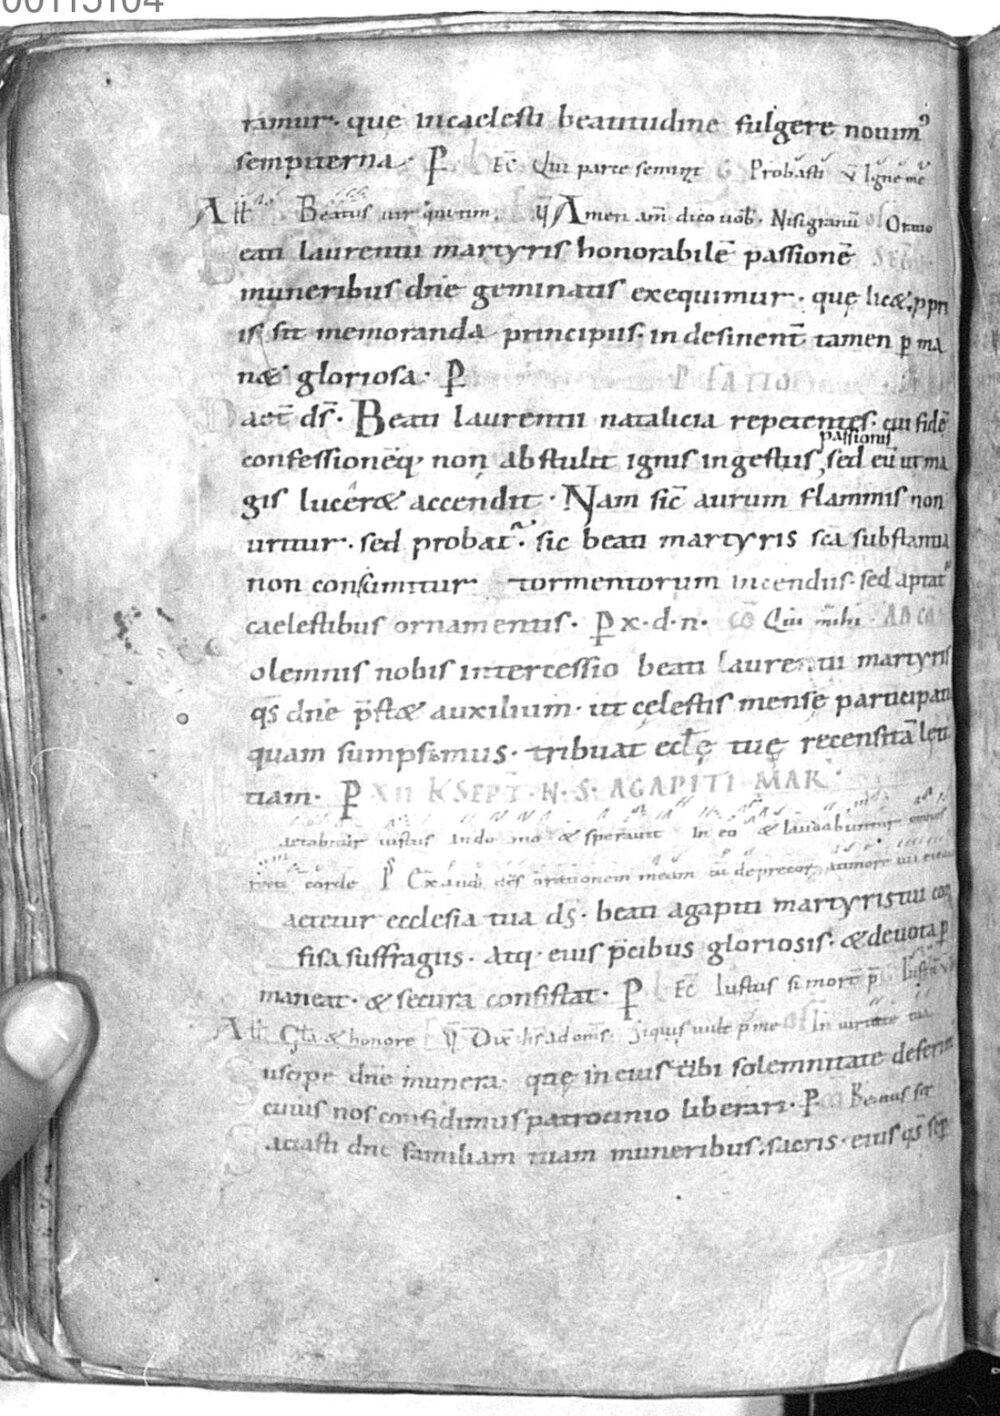 00115104
tamur· que incaelesti beatitudine fulgere nouim᷒
sempiterna· P Ec̄ Qui parce seminat G Probasti v̄ Igne me
All Beatus uir qui tim. ev̄ Amen am̄ dico uob̄· Nisi granū of Oratio
eati laurentii martyris honorabilē passionē SECR
muneribus dn̄e geminatis exequimur· quę licæ ppri
is sit memoranda principiis· in desinent̄ tamen p̱ ma
næ gloriosa· P P̄FATIO
aet̄ ds̄· Beati laurentii natalicia repetentes· cui fidē
passionis
confessionēq· non abstulit ignis ingestus, sed eū ut ma
gis lucêræ accendit· Nam sic̄ aurum flammis non
uritur· sed probat᷑· sic beati martyris sc̄a substantia
non consumitur tormentorum incendiis· sed aptat᷑
caelestibus ornamentis· P x·d·n· co Qui mihi· AD CO
olemnis nobis intercessio beati laurentii martyris
qs̄ dn̄e p̄stæ auxilium· ut celestis mense participatio
quam sumpsimus· tribuat eccl̄ę tuę recensita leti
tiam· P XII K SEPT· N· S· AGAPITI MAR·
Lætabitur iustus in domino & sperauit in eo & laudabuntur omnes
recti corde P Exaudi ds̄ orationem meam cū deprecor, a timore
aetetur ecclesia tua ds̄· beati agapiti martyris tui con
fisa suffragiis· Atq· eius p̄cibus gloriosis· & deuota p̱
maneat· & secura consistat· P Ec̄ Iustus si morte p̄
All Glā & honore ev̄ Dix̄ ih̄s ad om̄s· Siquis uult p̄ me of In uirtute tua
uscipe dn̄e munera· quę in eius tibi solemnitate deferim
cuius nos confidimus patrocinio liberari· P co Beatus ser
atiasti dn̄e familiam tuam muneribus sacris· eius qs̄ sep̄